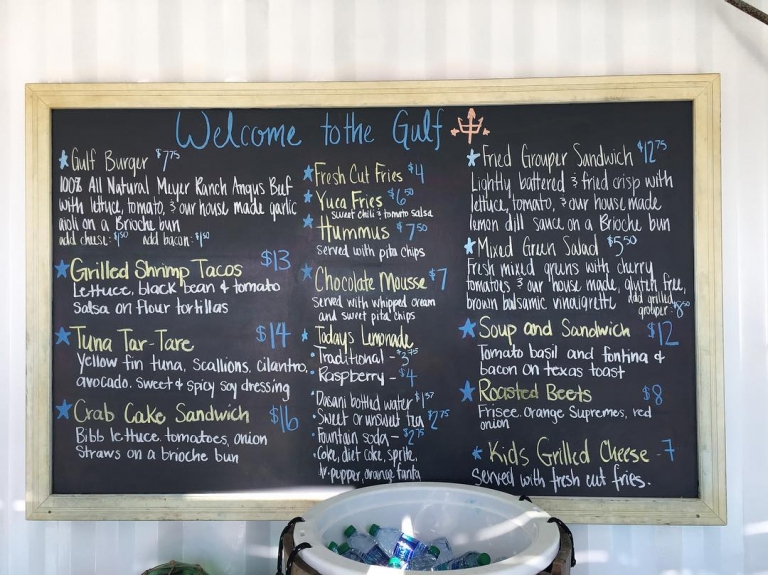 Welcome to the Gulf
Gulf Burger $7.75
100% All Natural Meyer Ranch Angus Beef
with lettuce, tomato, & our house made garlic
aioli on a Brioche bun
add cheese: $1.50 add bacon: $1.50
Grilled Shrimp Tacos $13
Lettuce, black bean & tomato
Salsa on flour tortillas
Tuna Tar-Tare $14
Yellow fin tuna, Scallions, cilantro,
avocado, sweet & spicy soy dressing
Crab Cake Sandwich $16
Bibb lettuce, tomatoes, onion
Straws on a brioche bun
Fresh Cut Fries $4
Yuca Fries $6.50
sweet chili & tomato salsa
Hummus $7.50
Served with pita chips
Chocolate Mousse $7
Served with whipped cream
and sweet pita chips
Todays Lemonade
Traditional - $3.75
Raspberry - $4
Dasani bottled water $1.57
Sweet or unsweet tea $2.75
Fountain soda - $2.75
Coke, diet coke, sprite,
Dr. pepper, orange fanta
Fried Grouper Sandwich $12.75
Lightly battered & fried crisp with
lettuce, tomato, & our house made
lemon dill sauce on a Brioche bun
Mixed Green Salad $5.50
Fresh mixed greens with cherry
tomatoes & our house made, gluten free,
brown balsamic vinaigrette add grilled
grouper: $8.50
Soup and Sandwich $12
Tomato basil and fontina &
bacon on texas toast
Roasted Beets $8
Frisee, Orange Supremes, red
onion
Kids Grilled Cheese - 7
Served with fresh cut fries.